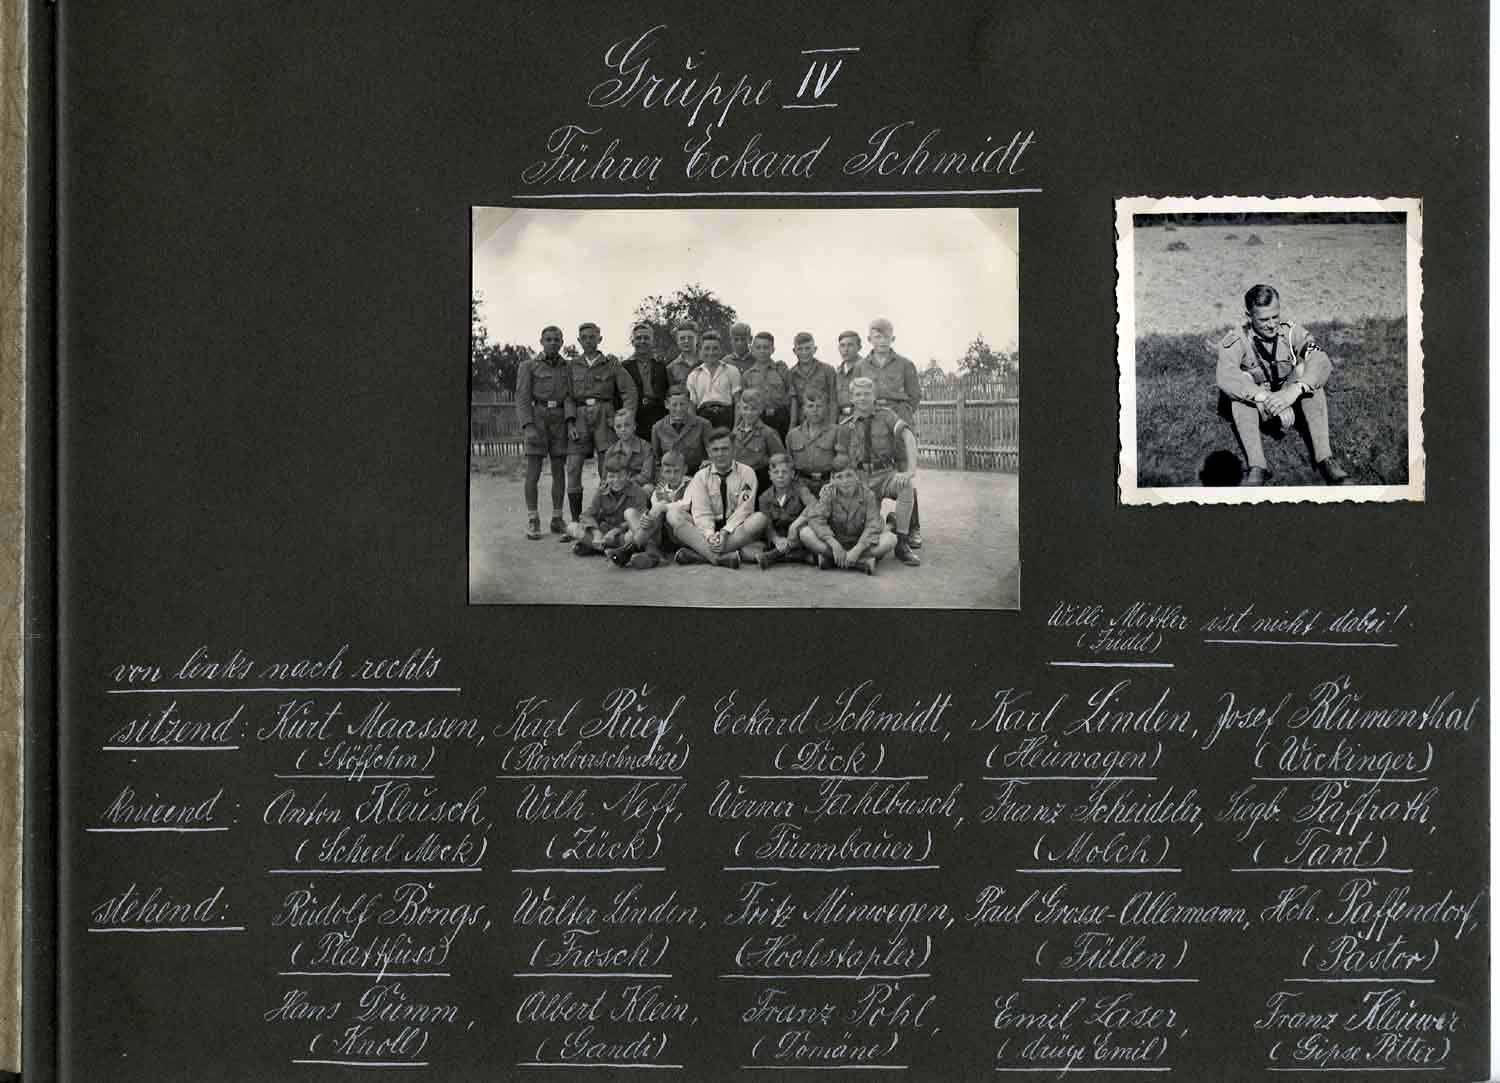 Gruppe IV
Führer Eckard Schmidt
Willi Mettler ist nicht dabei!
(Züdd)
von links nach rechts
sitzend: Kurt Maassen, Karl Ruef, Eckard Schmidt, Karl Linden, Josef Blumenthal
(Stöffchen) (Revolverschnauze) (Dick) (Heuwagen) (Wickinger)
knieend: Anton Kleusch, Wilh. Neff, Werner Fahlbusch, Franz Scheideler, Siegb. Paffrath,
(Scheel Meck) (Zück) (Turmbauer) (Molch) (Tant)
stehend: Rudolf Bongs, Walter Linden, Fritz Minwegen, Paul Grosse-Allermann, Hch. Paffendorf,
(Plattfuss) (Frosch) (Hochstapler) (Füllen) (Pastor)
Hans Dumm, Albert Klein, Franz Pohl, Emil Laser, Franz Kleuwer
(Knoll) (Gandi) (Domäne) (drügi Emil) (Gipse Pitter)